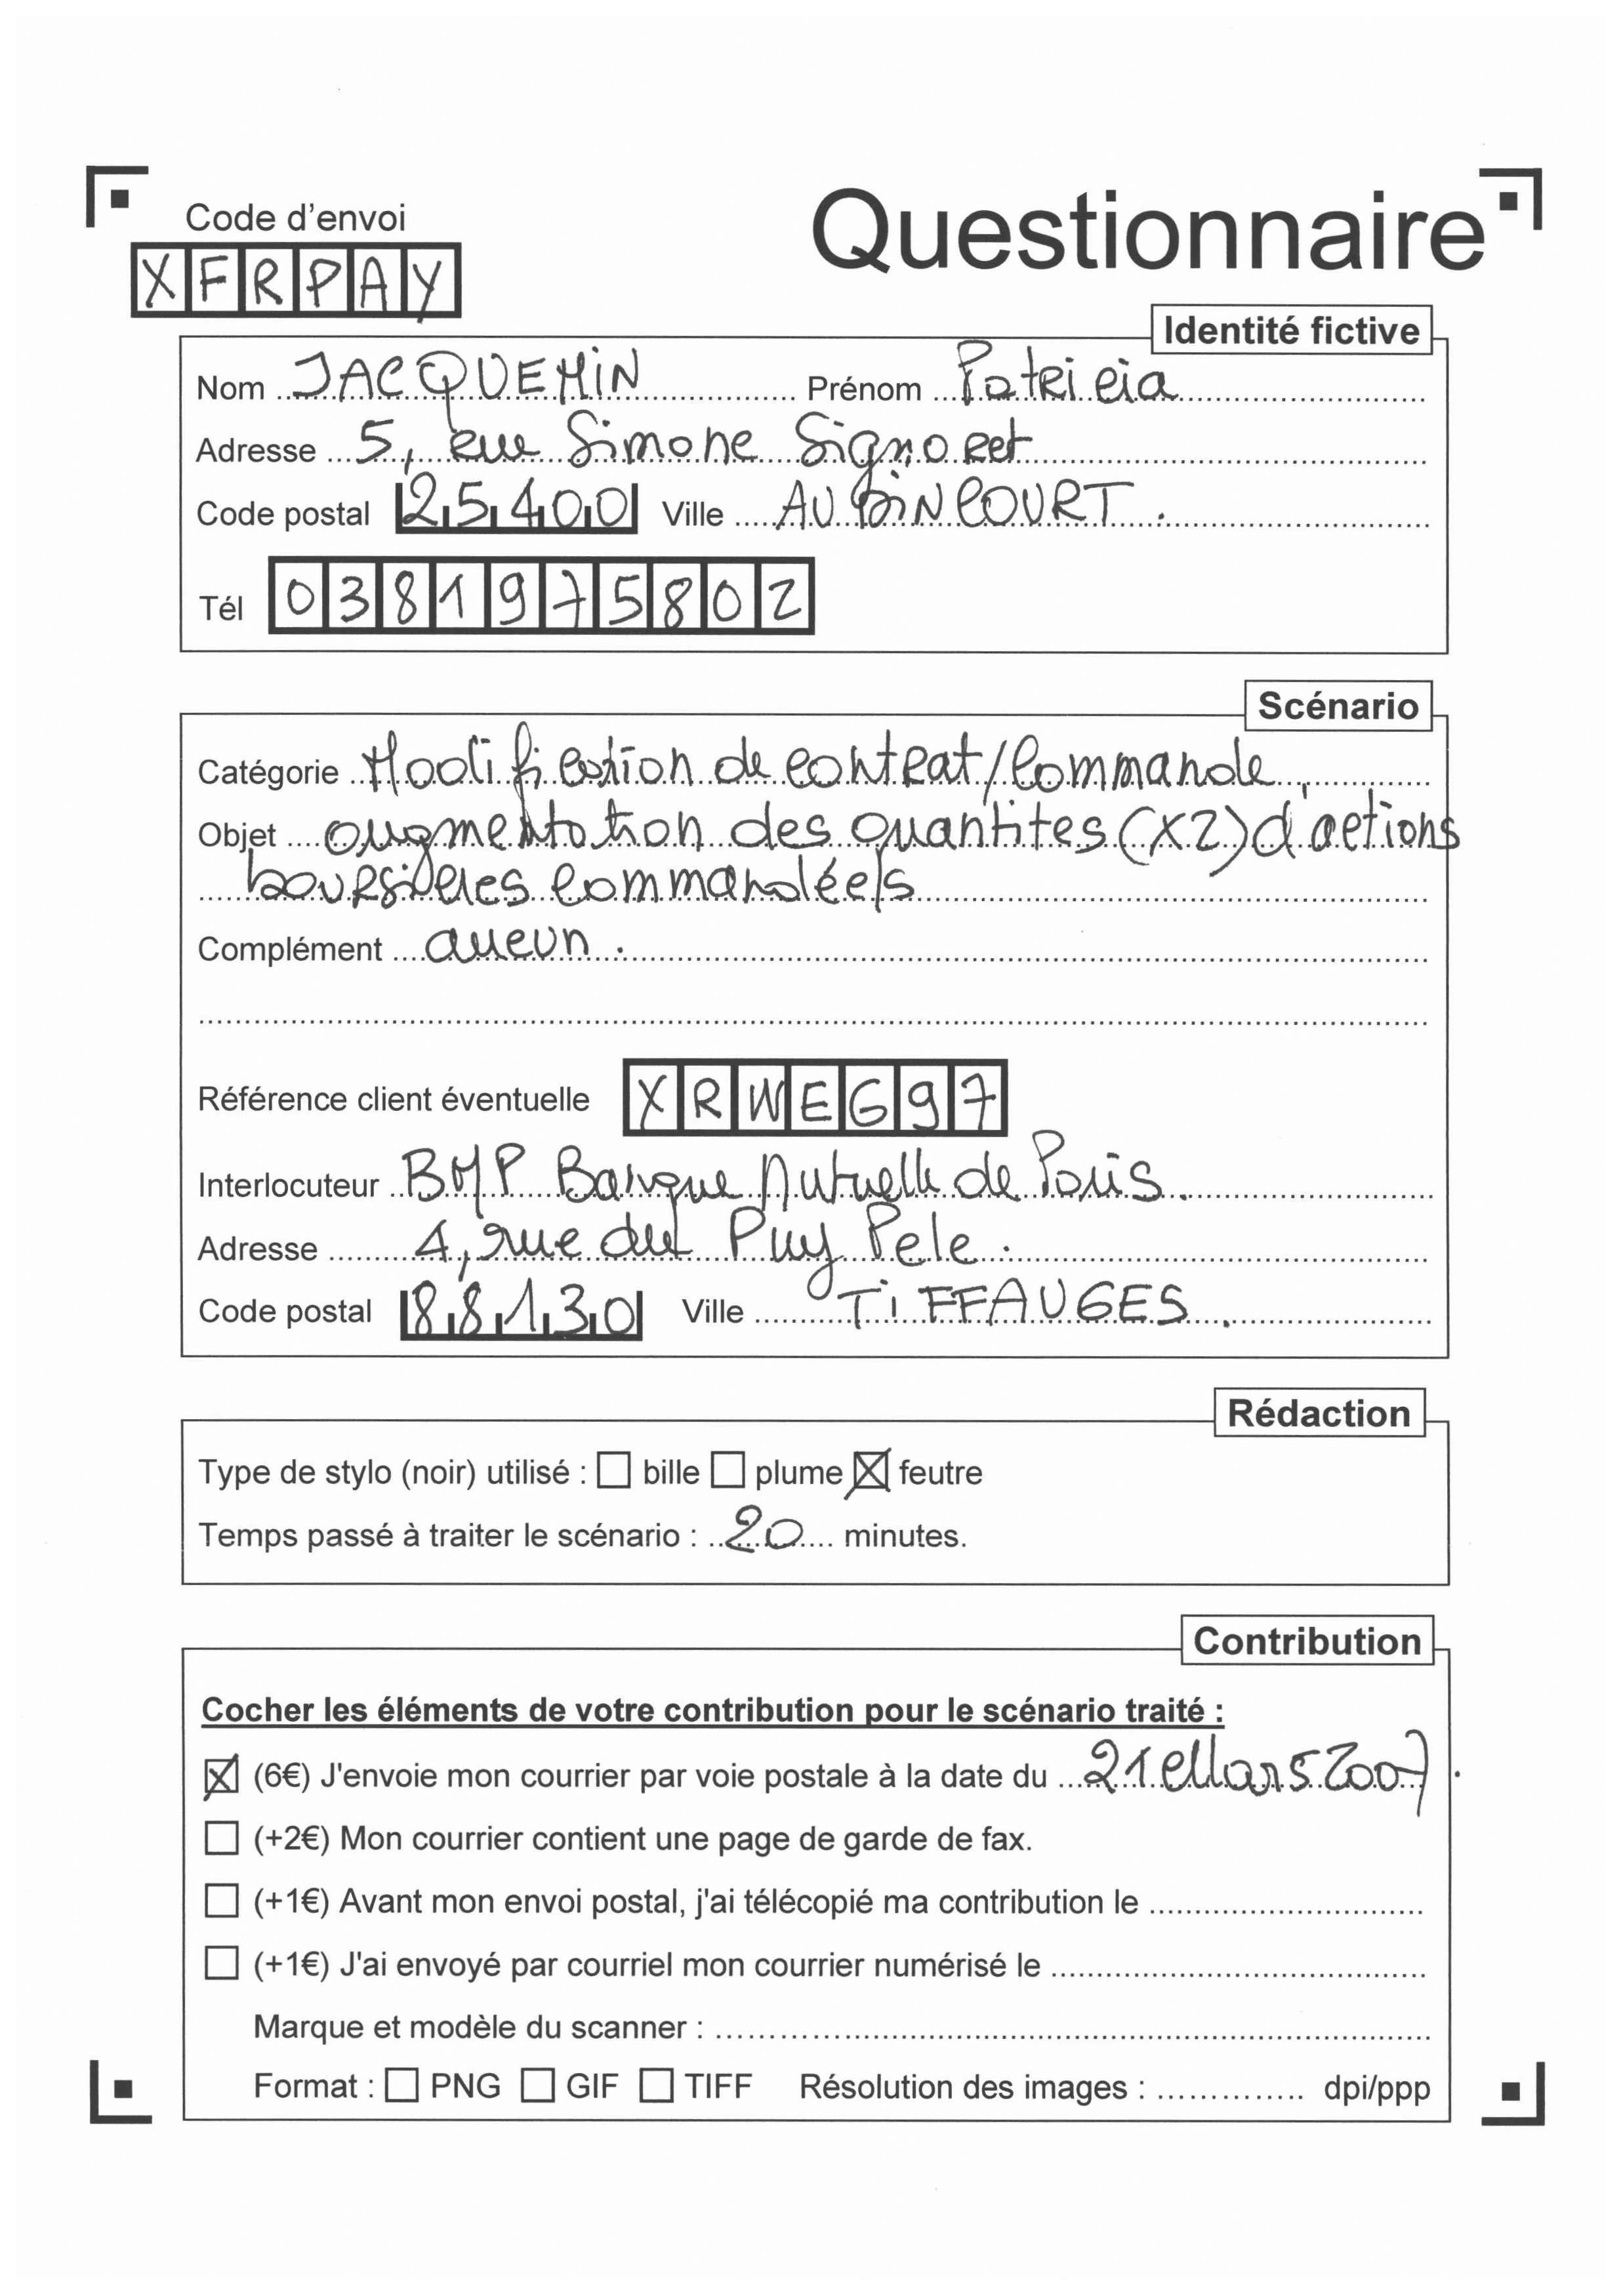 Code d'envoi
Questionnaire
XFRPAY
Identité fictive
Nom JACQUEMIN Prénom Patricia
Adresse 5, rue Simone Signoret
Code postal 25400 Ville AUDINCOURT.
Tél 0381975802
Scénario
Catégorie Modification de contrat/Commande
Objet augmentation des quantites (x2) d'actions
boursières commandées
Complément aucun.
Référence client éventuelle XRWEG97
Interlocuteur BMP Banque Mutuelle de Paris.
Adresse 4, rue du Puy Pele.
Code postal 88130 Ville TiFFAUGES.
Rédaction
Type de stylo (noir) utilisé : bille plume feutre
Temps passé à traiter le scénario : 20 minutes.
Contribution
Cocher les éléments de votre contribution pour le scénario traité :
(6€) J'envoie mon courrier par voie postale à la date du 21 Mars 2007.
(+2€) Mon courrier contient une page de garde de fax.
(+1€) Avant mon envoi postal, j'ai télécopié ma contribution le
(+1€) J'ai envoyé par courriel mon courrier numérisé le
Marque et modèle du scanner :
Format : PNG GIF TIFF Résolution des images : dpi/ppp